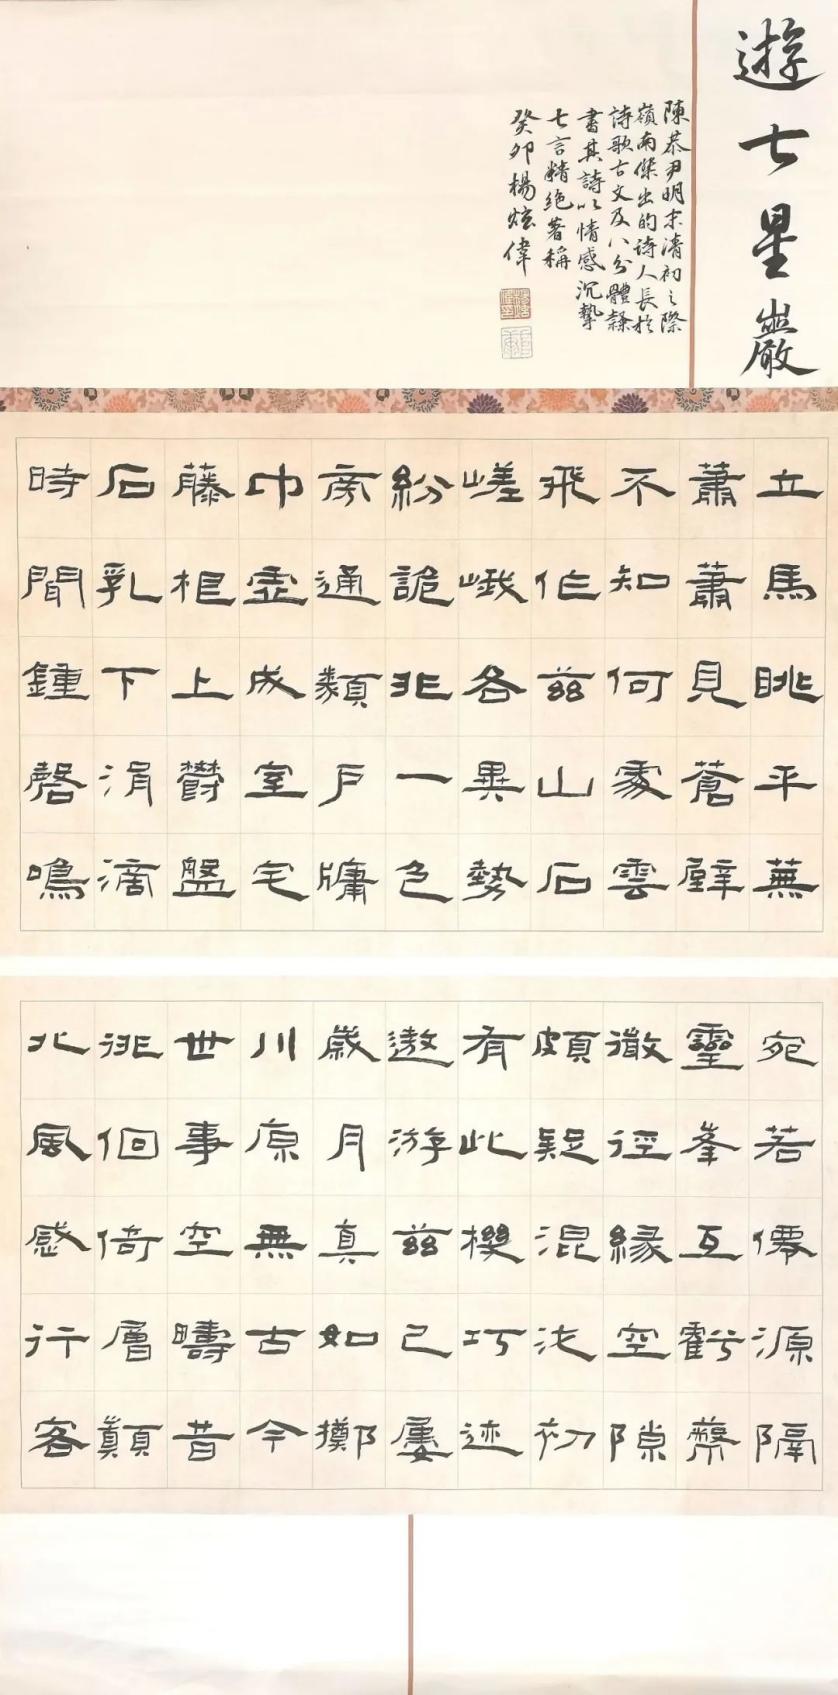 遊七星巖
陳恭尹明末清初之際
嶺南傑出的詩人長於
詩歌古文及八分體隸
書其詩以情感沉摯
七言精絕著稱
癸卯楊炫偉
立馬眺平蕪
蕭蕭見蒼壁
不知何處雲
飛作茲山石
嵯峨各異勢
紛詭非一色
旁通類戶牖
中虛成室宅
藤根上鬱盤
石乳下涓滴
時聞鍾磬鳴
宛若僊源隔
靈峯互虧蔽
微徑緣空隙
頗疑混沌初
有此機巧迹
遨游茲已屢
歲月真如擲
川原無古今
世事空疇昔
徘徊倚層顛
北風感行客